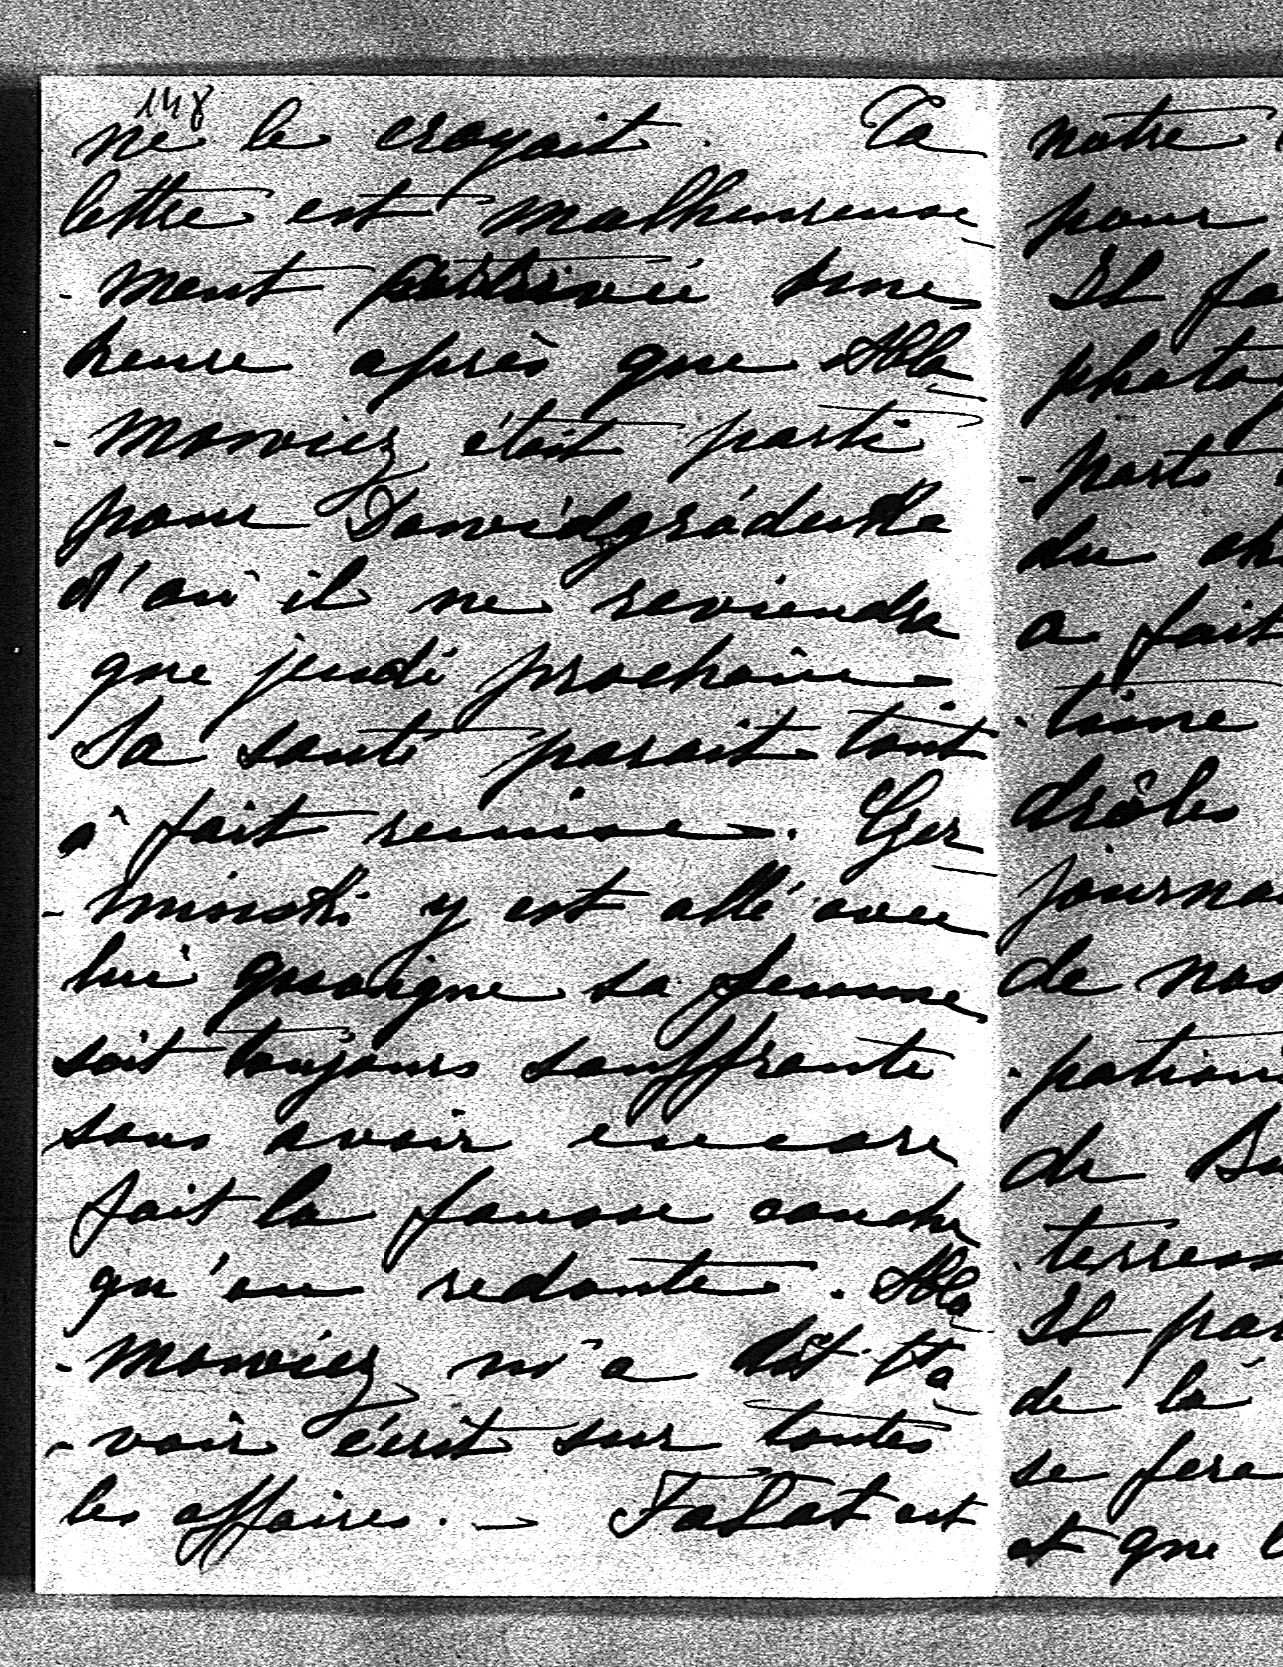 148
ne le croyait. Ta
lettre est malheureuse
- ment arrivée une
heure après que Abla
- mowicz était parti
pour Dawidgródek
d'où il ne reviendra
que jeudi prochain
Sa santé parait tout
à fait remise. Ger
- minski y est allé avec
lui quoique sa femme
soit toujours souffrante
sans avoir encore
fait la fausse couche
qu'on redoute. Abla
- mowicz m'a dit t'a
- voir écrit sur toutes
les affaires. — Falat est
notre
pour
Il fa
photo
- parts
du ch
a fait
- tine
drôles
journa
de nos
- pation
de Bu
- terress
Il par
de la
se fera
et que l